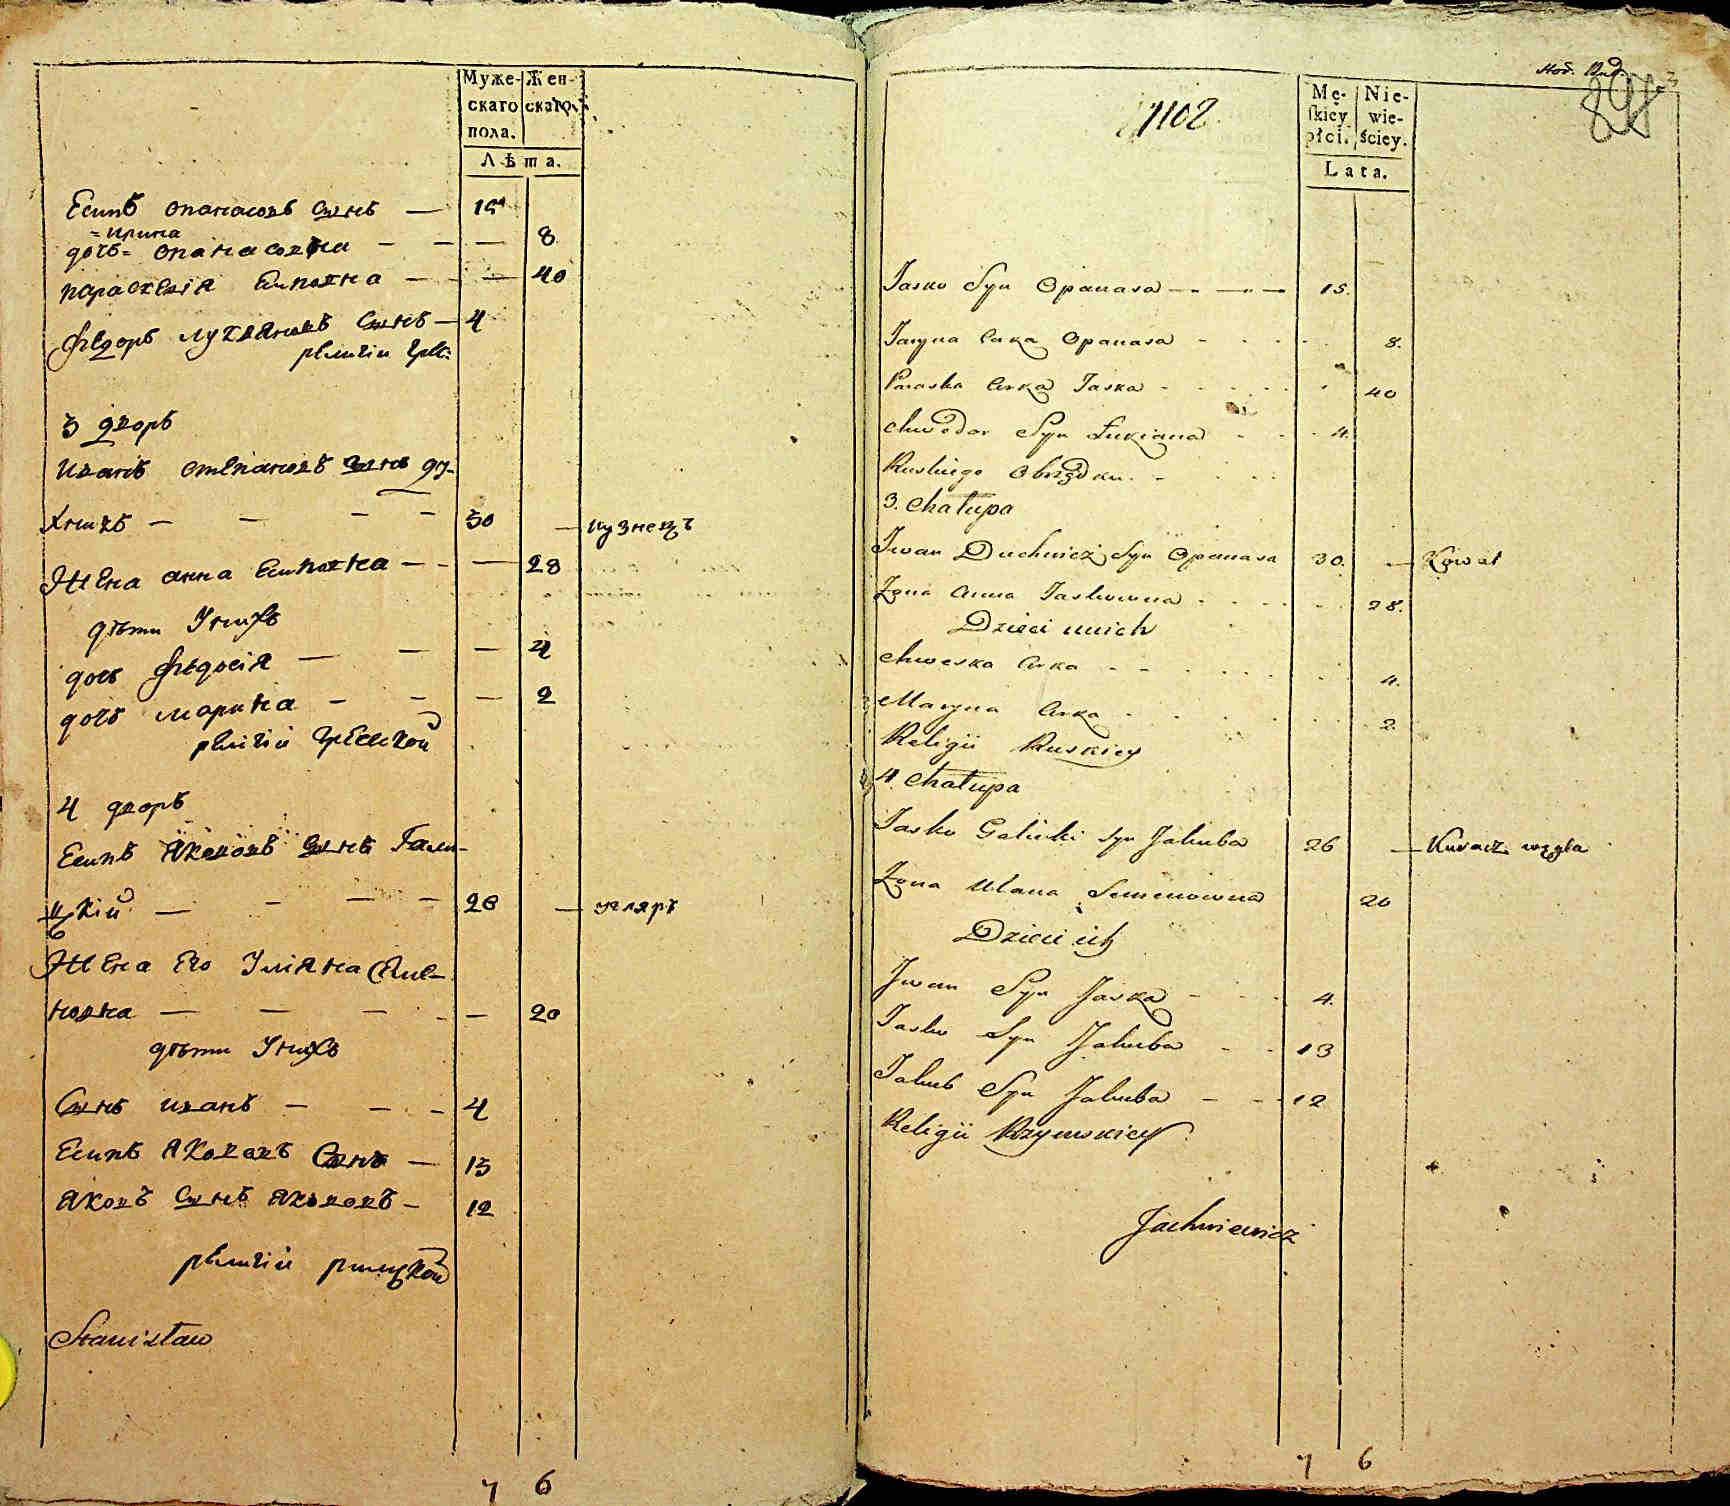 Муже-
скаго
пола.
Жен-
скаго.
Лѣта.
Есипъ опанасовъ сынъ — 15
= ирина
дочь = опанасовна — — — 8
параскевія Есиповна — — 40
Ѳедоръ лукьяновъ сынъ — 4
религіи гре:
3 дворъ
иванъ степановъ сынъ ду-
хничъ — — — — 30 — кузнецъ
жена анна Есиповна — — — 28
дѣти у нихъ
дочь Ѳедосія — — — 4
дочь марина — — — 2
религіи греческой
4 дворъ
Есипъ якововъ сынъ Гали-
цкій — — — — 26 — угляръ
жена его уліяна семе-
новна — — — — 20
дѣти у нихъ
сынъ иванъ — — — 4
Есипъ якововъ сынъ — 13
яковъ сынъ якововъ — 12
религіи римской
Stanisław
7 6
1102
Mę-
skiey
płci.
Nie-
wie-
ściey.
Lata.
Jasko Syn Opanasa — — — 15.
Jaryna Curka Opanasa - - - - 8.
Paraska Curka Jaska - - - - 40
Chwedor Syn Łukiana - - - 4.
Ruskiego Obrządku.
3. Chałupa
Iwan Duchnicz Syn Opanasa 30. — Kowal
Żona Anna Jaskowna - - - - 28.
Dzieci u nich
Chweska Curka - - - - 4.
Maryna Curka - - - - 2.
Religii Ruskiey
4. Chałupa
Jasko Galicki syn Jakuba 26 — Kuracz węgla
Żona Ulana Semenowna 20
Dzieci ich
Jwan Syn Jaska - - - 4.
Jasko Syn Jakuba - - 13
Jakub Syn Jakuba - - 12
Religii Rzymskiey
Jachniewicz
7 6